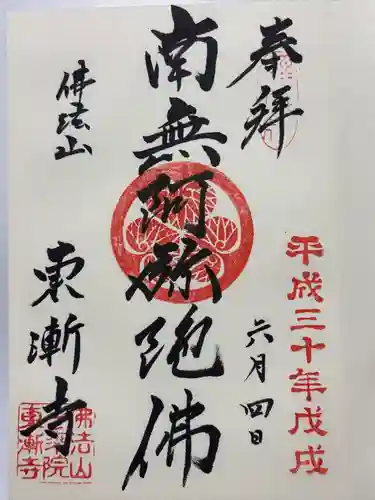 奉拝
平成三十年戊戌
六月四日
南無阿弥陀佛
佛法山
東漸寺
佛法山
東漸寺